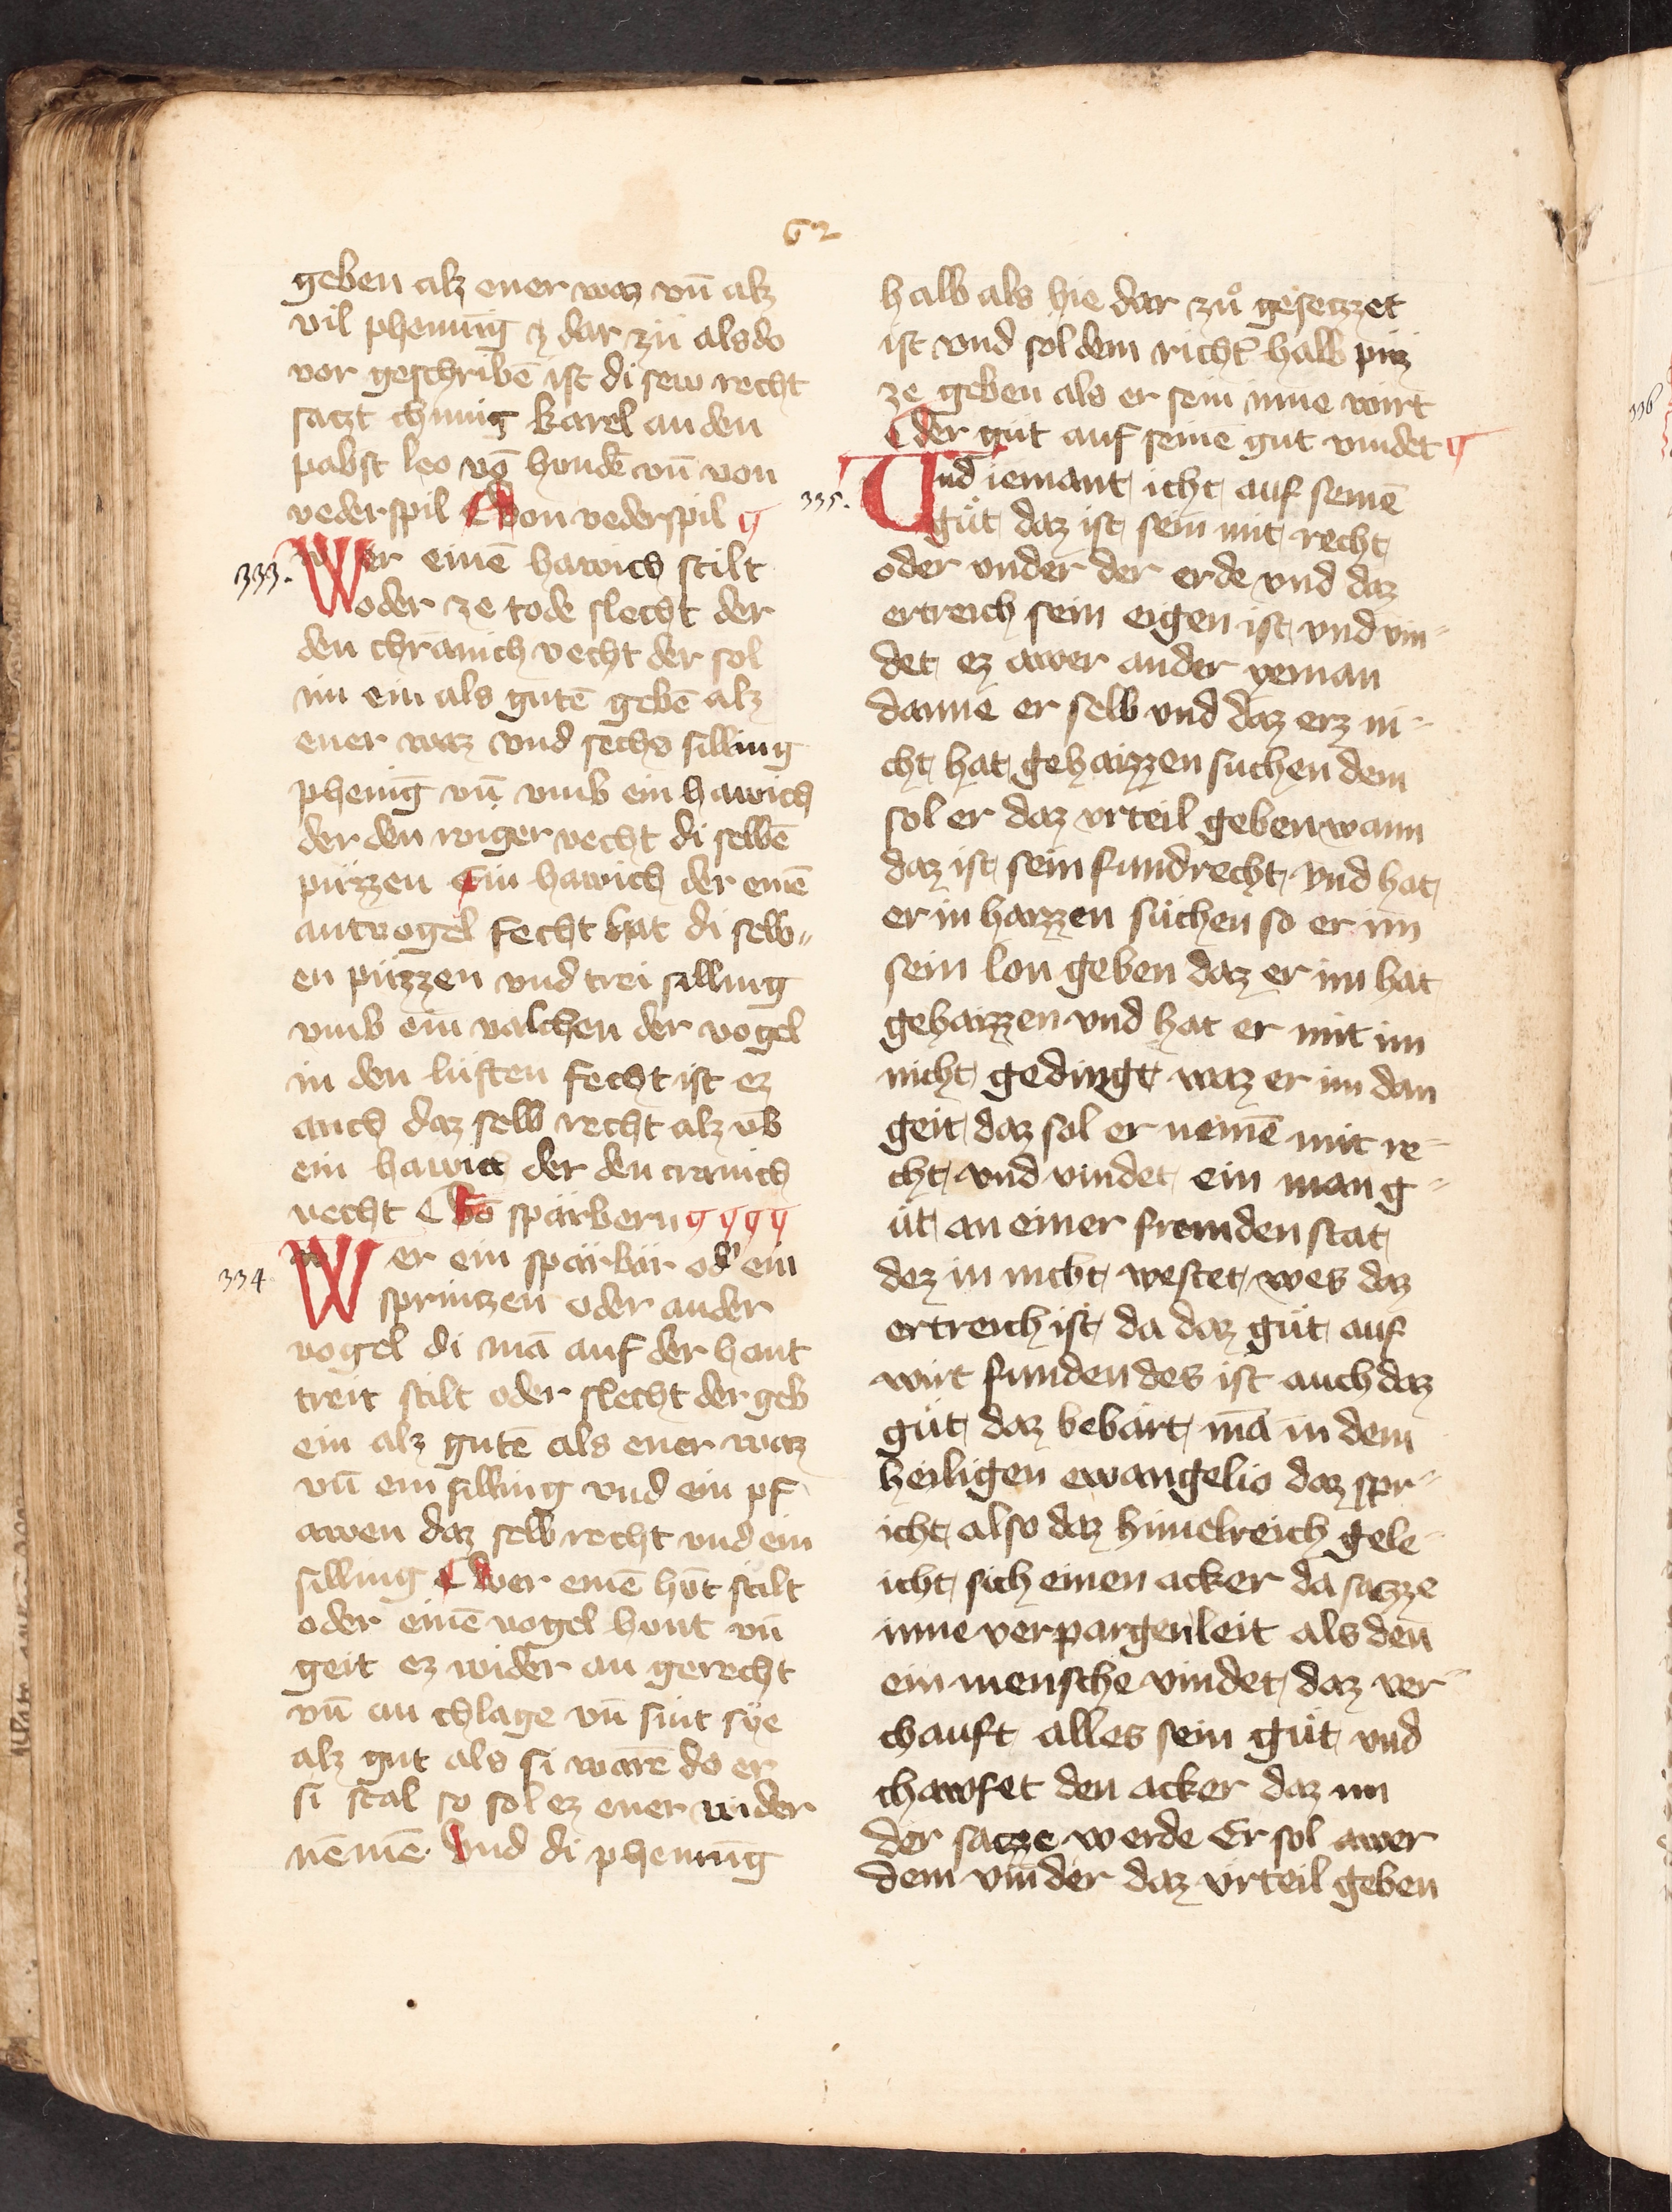 62
geben alz ener waz vn̄ alz
vil phenning ꝫ dar zü als do
vor geschribē ist di sew recht
satzt chunig karel an den
pabst leo vō hondē vn̄ von
vederspil Von vederspil
333. Wer einē hawich stilt
oder ze tode slecht der
den chranich vecht der sol
im ein als gutē gebē alz
ener waz vnd sechs silling
phenīg vn̄ vmb ein hawich
der den raiger vecht di selbē
püzzen Ein hawich der einē
antvogel fecht hat di selb„
en püzzen vnd trei silling
vmb ein valchen der vogel
in den lüften fecht ist ez
auch daz selb recht alz vb̄
ein hawich der den cranich
vecht Vō spärbern
334 Wer ein spärbär od' ein
sprintzen oder ander
vogel di mā auf der hant
treit stilt oder slecht der geb
ein alz gutē als ener waz
vn̄ ein silling vnd ein pf
awen daz selb recht vnd ein
silling Wer einē hv̄t stilt
oder einē vogel hunt vn̄
geit ez wider an gerecht
vn̄ an chlage vn̄ sint sye
alz gut als si warē do er
si stal so sol ez ener wider
nēmē Vnd di phennīg
halb als hie dar zuͦ gesetzzet
ist vnd sol dem richt' halb püz
ze geben als er sein inne wirt
der güt auf seinē gut vindet
335. Vnd iemant icht auf seinē
güt daz ist sein mit recht
oder vnder der erde vnd daz
ertreich sein eigen ist vnd vin„
det ez awer ander yeman
danne er selb vnd daz erz ni„
cht hat gehaizzen suchen dem
sol er daz vrteil geben wann
daz ist sein fundrecht vnd hat
er in haizzen süchen so er im
sein lon geben daz er im hat
gehaizzen vnd hat er mit im
nicht gedingt waz er im dan
geit daz sol er nemē mit re„
cht vnd vindet ein man g„
üt an einer fremden stat
dez in nicht westet wes daz
ertreich ist da daz güt auf
wirt funden des ist auch daz
güt daz bebärt mā in dem
heiligen ewangelio daz spr„
icht also daz himelreich gele„
icht sich einen acker da satzze
inne verpargen leit als den
ein mensche vindet daz ver„
chauft alles sein güt vnd
chawfet den acker daz im
der satzze werde Er sol awer
dem vinder daz vrteil geben
336